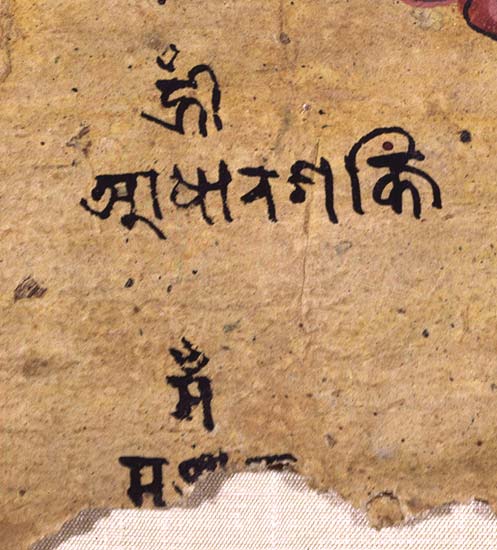 ह्रीँ
आधारशक्ति
मँ